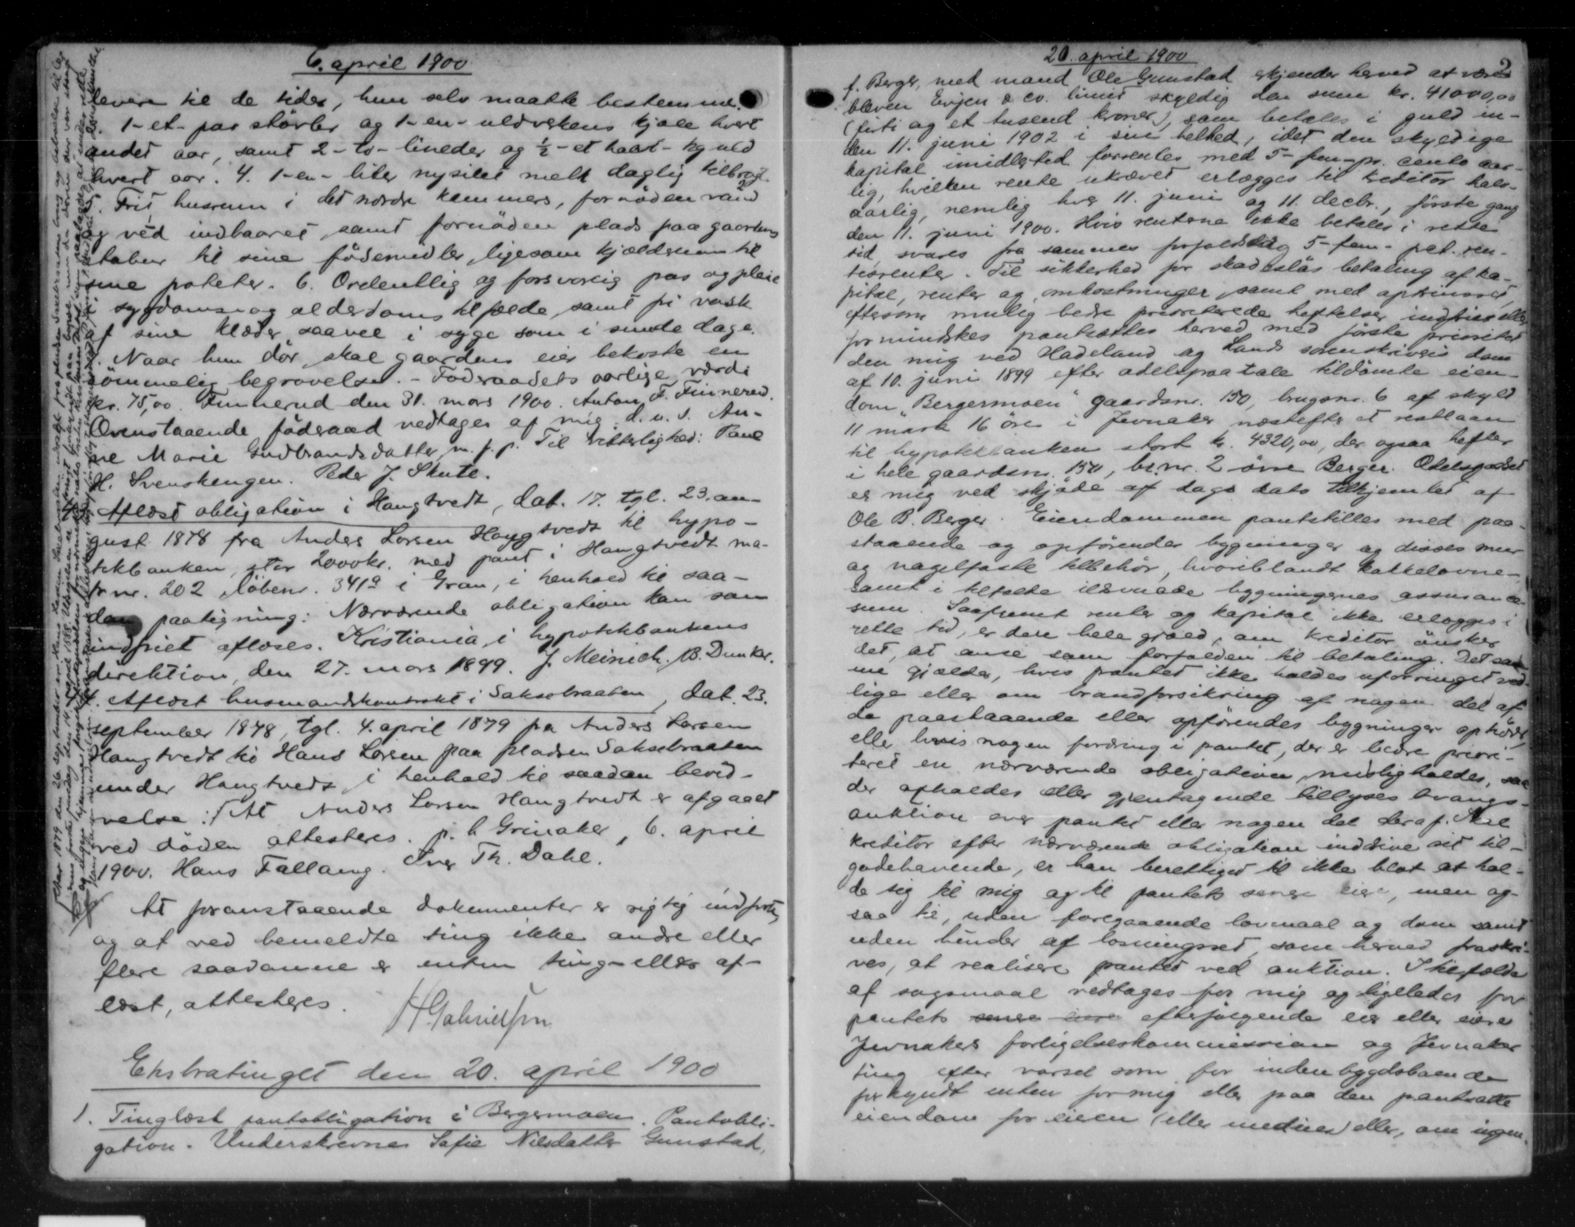 6. april 1900
levere til de tider, hun selv maatte bestemme.
1-et- par støvler og 1-en- uldverkens kjole hvert
andet aar, samt 2-to- lineder og ½-et halvt-
hvert aar. 4. 1-en- liter nysilet melk daglig
Frit husrum i det nordre kammers, fornøden vand
og ved indbaaret samt fornøden plads paa gaardens
stabur til sine fødemidler, ligesom kjælderrum til
sine poteter. 6. Ordentlig og forsvarlig pas og pleie
sygdoms- og alderdoms tilfælde, samt fri vask
af sine klæder saavel i syge som i sunde dage.
Naar hun dør, skal gaardens eier bekoste en
sømmelig begravelse. - Føderaadets aarlige værdi
kr. 75,00. Finnerud den 31. mars 1900. Anton F. Finnerud.
Ovenstaaende føderaad vedtages af mig d.u.s. An-
ne Marie Gudbrandsdatter m. p. p. Til vitterlighed: Paul
H. Svenskengen. Peder J. Skute.
Aflæst obligation i Haugtvedt, dat. 17. tgl. 23. au-
gust 1878 fra Anders Larsen Haugtvedt til hypo-
tekbanken, stor 2000 kr. med pant i Haugtvedt ma-
tr nr. 202 løbenr. 341a i Gran, i henhold til saa-
dan paategning: Nærværende obligation kan som
indfriet aflæses. Kristiania, i hypotekbankens
direktion, den 27. mars 1899. J. Meinich. B. Dunker.
Aflæst husmandskontrakt i Saksebraaten, dat. 23.
september 1878, tgl. 4. april 1879 fra Anders Larsen
Haugtvedt til Hans Larsen paa pladsen Saksebraaten
under Haugtvedt, i henhold til saadan bevid-
nelse: At Anders Larsen Haugtvedt er afgaaet
ved døden attesteres. p. t. Grinaker, 6. april
1900. Hans Fallang. Iver Th. Dahl.
At foranstaaende dokumenter er rigtig indført,
og at ved bemeldte ting ikke andre eller
flere saadanne er enten ting- eller af-
læst, attesteres.
HGabrielsen
Ekstratinget den 20. april 1900
1. Tinglæst pantobligation i Bergermoen. Pantobli-
gation. Underskrevne Sofie Nilsdatter Gunstad,
20. april 1900
2
f. Berger, med mand Ole Gunstad erkjender herved at være
bleven Evjen & co. limit. skyldig den sum kr. 41000,00
(firti og et tusend kroner), som betales i guld in-
den 11. juni 1902 i sin helhed, idet den skyldige
kapital imidlertid forrentes med 5-fem-pr. cento aar-
lig, hvilken rente ukrævet erlægges til kreditor halv-
aarlig, nemlig hver 11. juni og 11. decbr., første gang
den 11. juni 1900. Hvis renterne ikke betales i rette
tid, svares fra sammes forfaldsdag 5-fem-pct. ren-
tesrenter. Til sikkerhed for skadesløs betaling af ka-
pital, renter og omkostninger samt med oprinnsret,
eftersom mulig bedre prioriterede heftelser indfries eller
formindskes pantsættes herved med første prioritet
den mig ved Hadeland og Lands sorenskriveris dom
af 10. juni 1899 efter odelspaatale tildømte eien-
dom "Bergermoen" gaardsnr. 150, brugsnr. 6 af skyld
11 mark 16 øre i Jevnaker næstefter et restlaan
til hypotekbanken stort kr. 4320,00, der ogsaa hefter
i hele gaardsnr. 150, br. nr. 2 øvre Berger. Odelsgodset
er mig ved skjøde af dags dato tilhjemlet af
Ole B. Berger. Eiendommen pantstilles med paa-
staaende og opførendes bygninger og disses mur
og nagelfaste tilbehør, hvoriblandt kakkelovne-
samt i tilfælde ildsvaade bygningernes assurance-
sum. Saafremt renter og kapital ikke erlægges i
rette tid, er den hele gjæld, om kreditor ønsker
det, at anse som forfalden til betaling. Det sam-
me gjælder, hvis pantet ikke holdes uforringet ved-
lige eller om brandforsikring af nogen del af
de paastaaende eller opførendes bygninger ophører,
eller hvis nogen fordring i pantet, der er bedre priori-
teret en nærværende obligation, misligholdes, saa
der afholdes eller gjentagende tillyses tvangs-
auktion over pantet eller nogen del deraf. Skal
kreditor efter nærværende obligation inddrive sit til-
godehavende, er han berettiget til ikke blot at hol-
de sig til mig og til pantets senere eier, men og-
saa til, uden foregaaende lovmaal og dom samt
uden hinder af løsningsret, som herved fraskri-
ves, at realisere pantet ved auktion. I tilfælde
af søgsmaal vedtages for mig og ligeledes for
pantets senere eiere efterfølgende eier eller eiere
Jevnakers forligelseskommission og Jevnaker
ting efter varsel som for indenbygdsboende
forkyndt enten for mig eller paa den pantsatte
eiendom for eieren (eller medeier) eller, om ingen